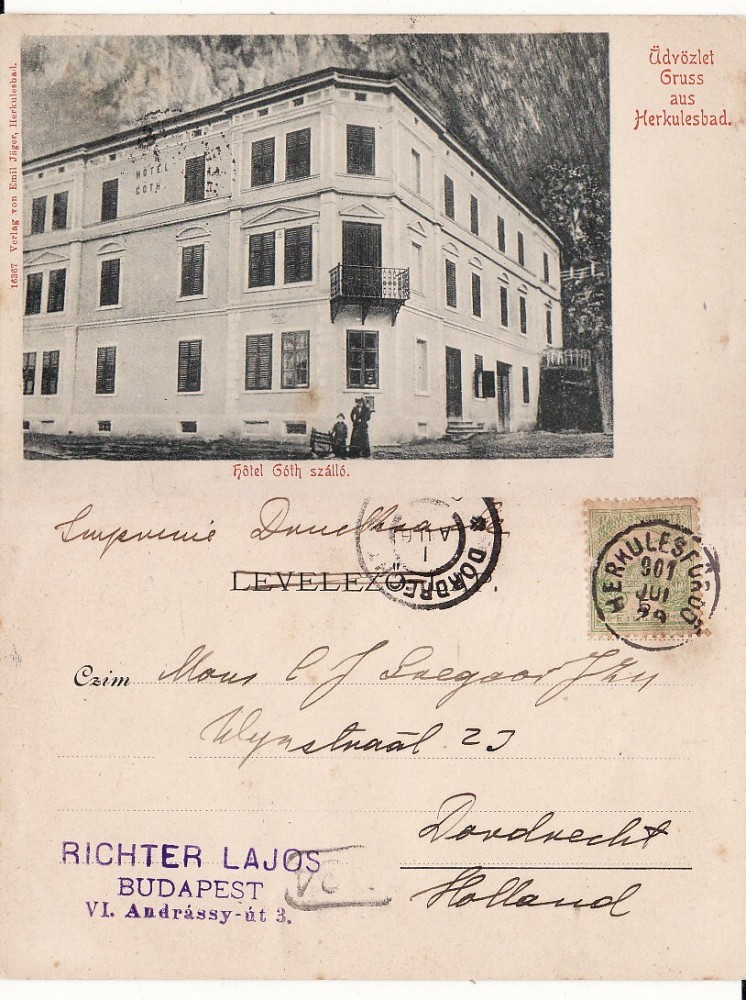 Üdvözlet
Gruss
aus
Herkulesbad.
16367 Verlag von Emil Jäger, Herkulesbad.
HÔTEL
GÓTH
Hôtel Góth szálló.
Imprimé
DORDREC
1
AUG
HERKULESFÜRDŐ
901
JUL
29
Czim Mons C J
23
Dordrecht
Holland
RICHTER LAJOS
BUDAPEST
VI. Andrássy-út 3.